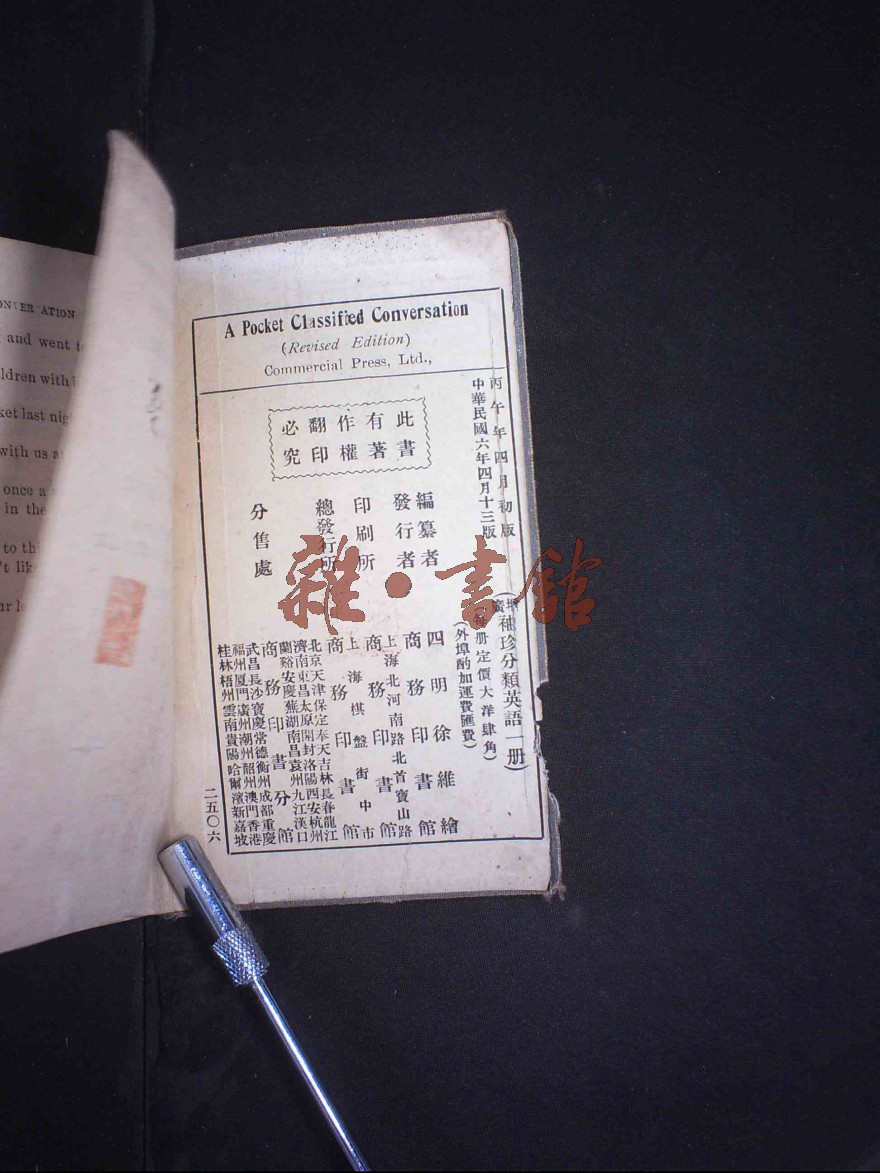 A Pocket Classified Conversation
(Revised Edition)
Commercial Press, Ltd.,
丙午年四月初版
中華民國六年四月十三版
此書
有著
作權
翻印
必究
(增廣袖珍分類英語一册)
(每册定價大洋肆角)
(外埠酌加運費匯費)
編纂者
四明徐維繪
發行者
商務印書館
印刷所
上海北河南路北首寶山路
商務印書館
總發行所
上海棋盤街中市
商務印書館
分售處
北京天津保定奉天吉林長春龍江
濟南東昌太原開封洛陽西安杭州
蘭谿安慶蕪湖南昌袁州九江漢口
商務印書分館
武昌長沙寶慶常德衡州成都重慶
福州厦門廣州潮州韶州澳門香港
桂林梧州雲南貴陽哈爾濱新嘉坡
二五〇六
雜·書館
ATION
and went
ldren with
ket last
with us
once a
in the
to